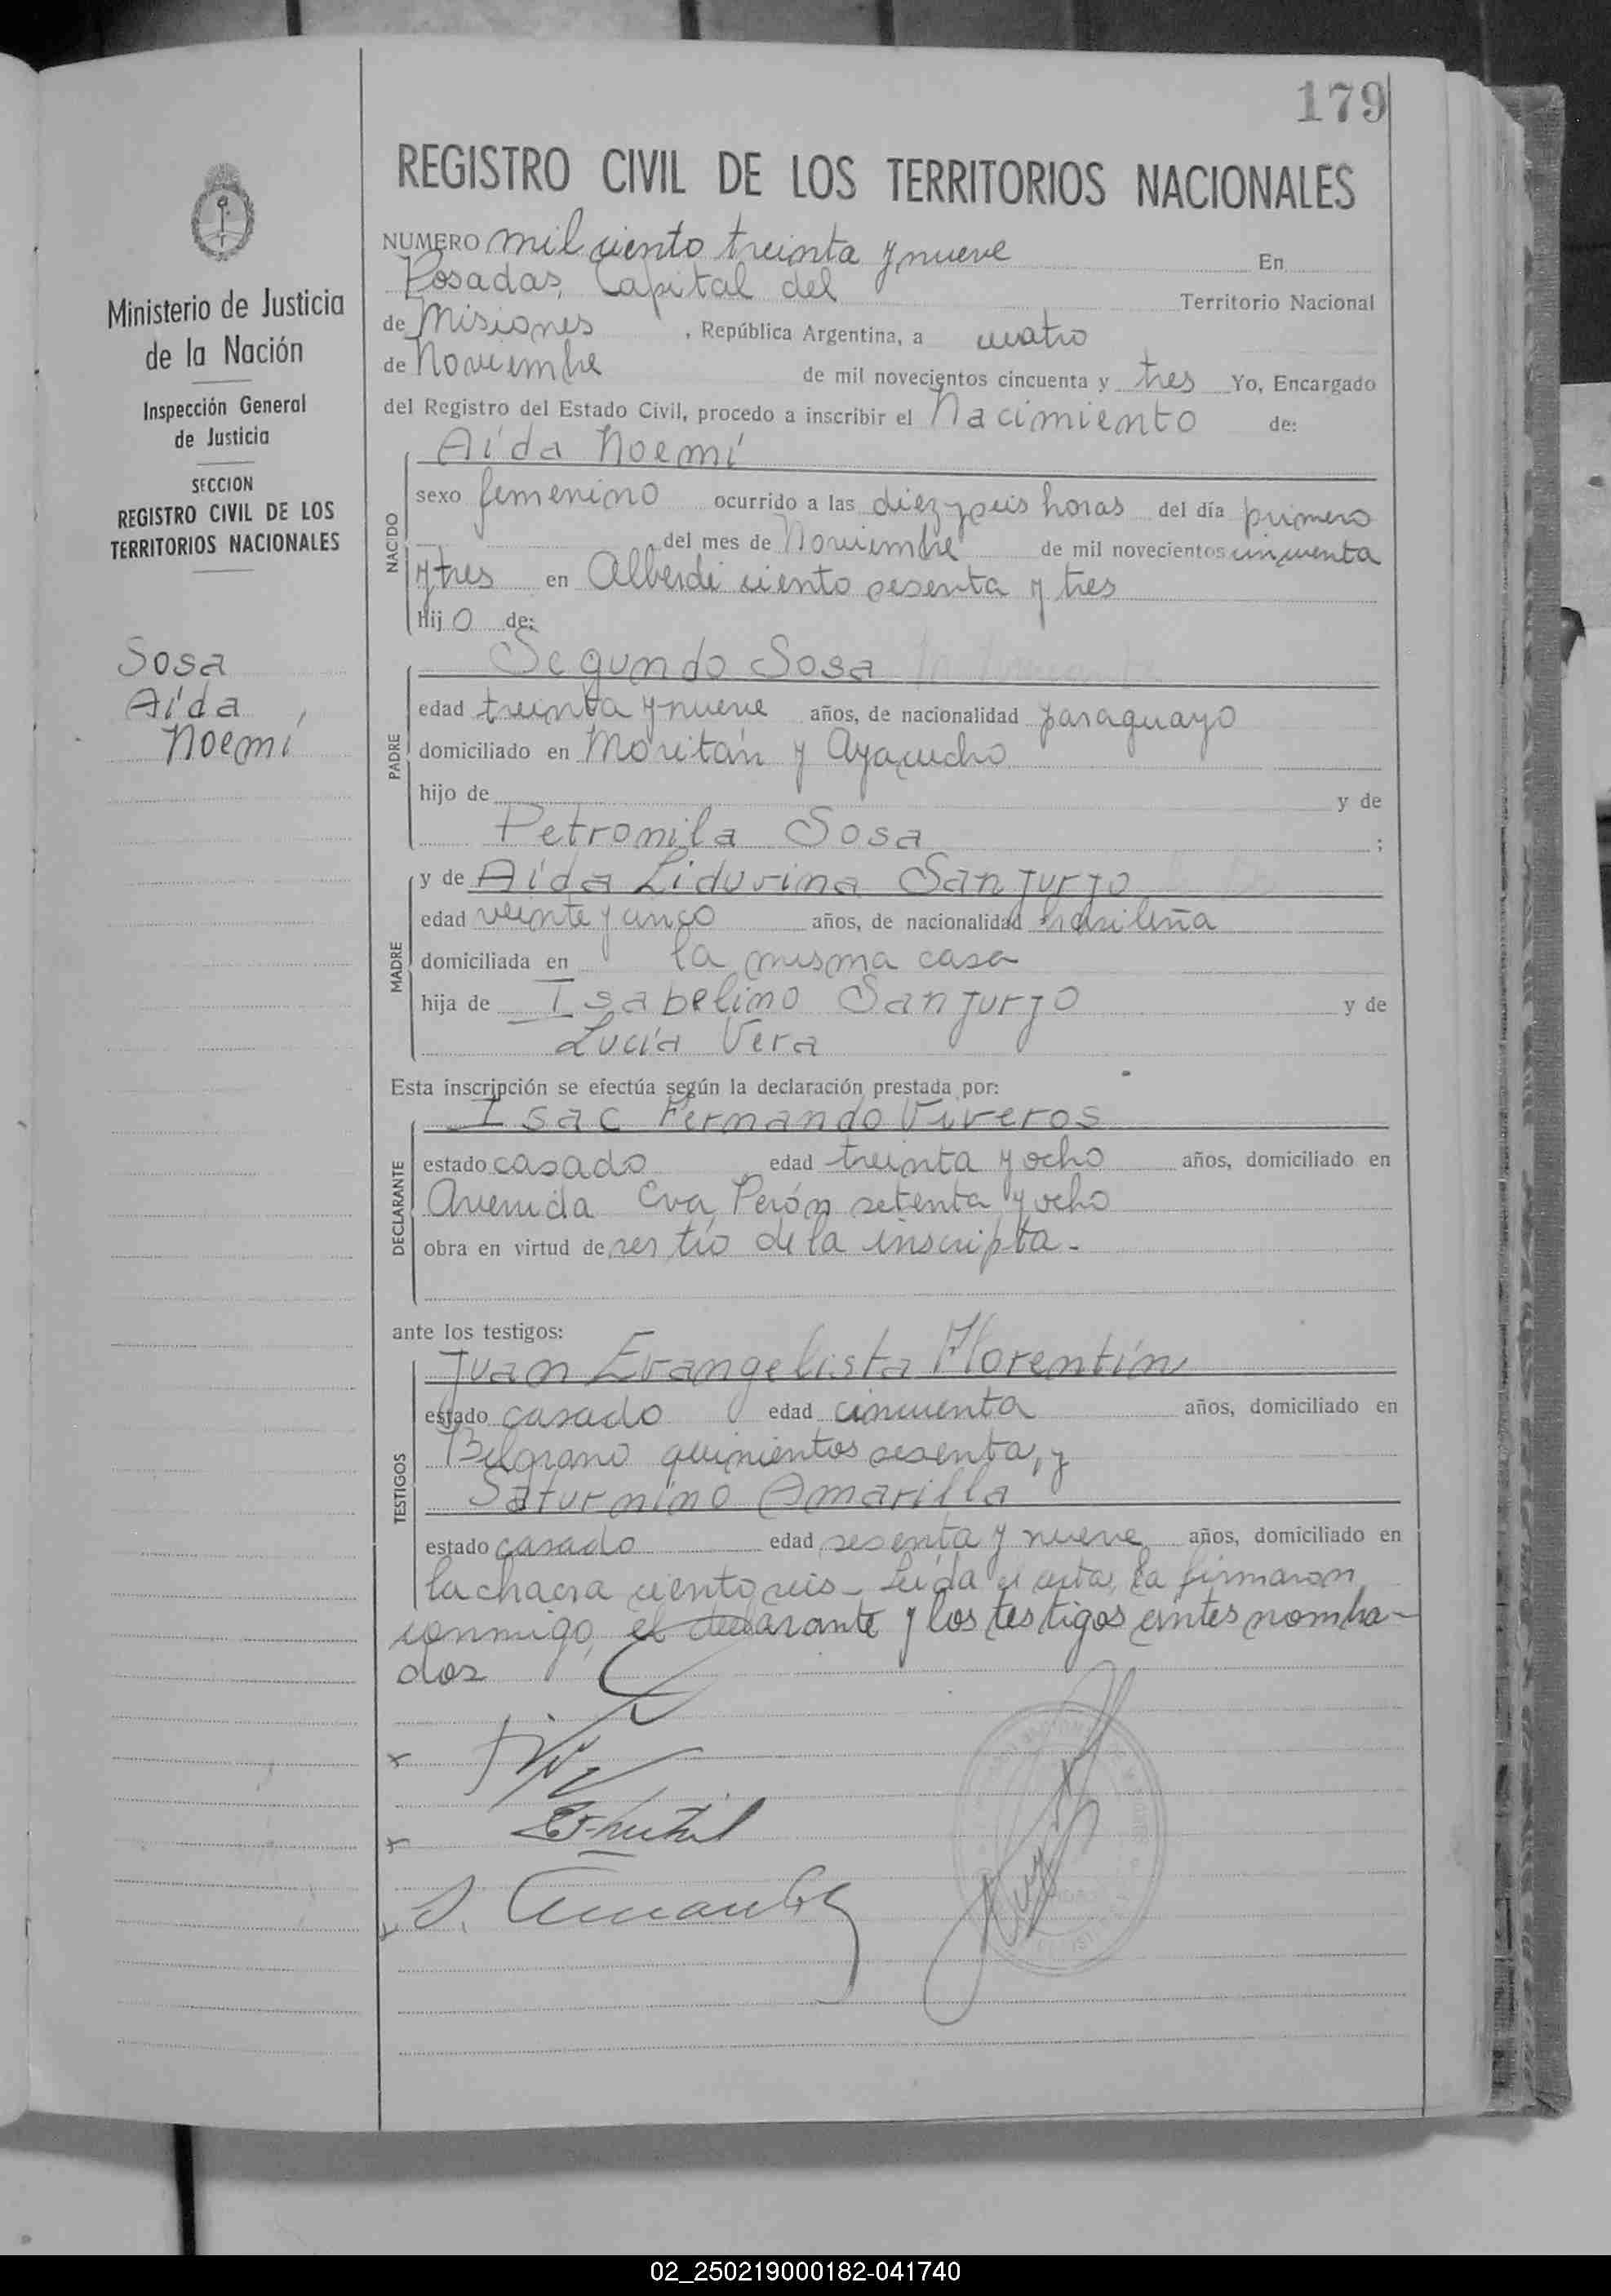 179
REGISTRO CIVIL DE LOS TERRITORIOS NACIONALES
Ministerio de Justicia
de la Nación
Inspección General
de Justicia
SECCION
REGISTRO CIVIL DE LOS
TERRITORIOS NACIONALES
Sosa
Aída
Noemí
NUMERO mil ciento treinta y nueve En
Posadas, Capital del Territorio Nacional
de Misiones, República Argentina, a cuatro
de Noviembre de mil novecientos cincuenta y tres Yo, Encargado
del Registro del Estado Civil, procedo a inscribir el Nacimiento de:
NACIDO
Aída Noemí
sexo femenino ocurrido a las diez y seis horas del día primero
del mes de Noviembre de mil novecientos cincuenta
y tres en Alberdi ciento sesenta y tres
Hijo de:
PADRE
Segundo Sosa
edad treinta y nueve años, de nacionalidad paraguayo
domiciliado en Moritán y Ayacucho
hijo de y de
Petronila Sosa ;
MADRE
y de Aída Lidurina Sanjurjo
edad veinte y cinco años, de nacionalidad brasileña
domiciliada en la misma casa
hija de Isabelino Sanjurjo y de
Lucía Vera
Esta inscripción se efectúa según la declaración prestada por:
DECLARANTE
Isac Fernando Viveros
estado casado edad treinta y ocho años, domiciliado en
Avenida Eva Perón setenta y ocho
obra en virtud de ser tío de la inscripta.
ante los testigos:
TESTIGOS
Juan Evangelista Florentín
estado casado edad cincuenta años, domiciliado en
Belgrano quinientos sesenta, y
Saturnino Amarilla
estado casado edad sesenta y nueve años, domiciliado en
la chacra ciento seis - Leída el acta, la firmaron
conmigo, el declarante y los testigos antes nombra-
dos
02_250219000182-041740